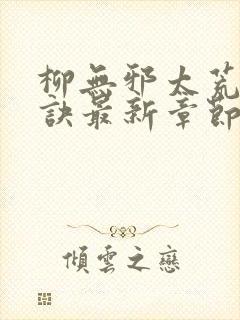 柳無邪太荒
訣最新章節
傾雲之戀